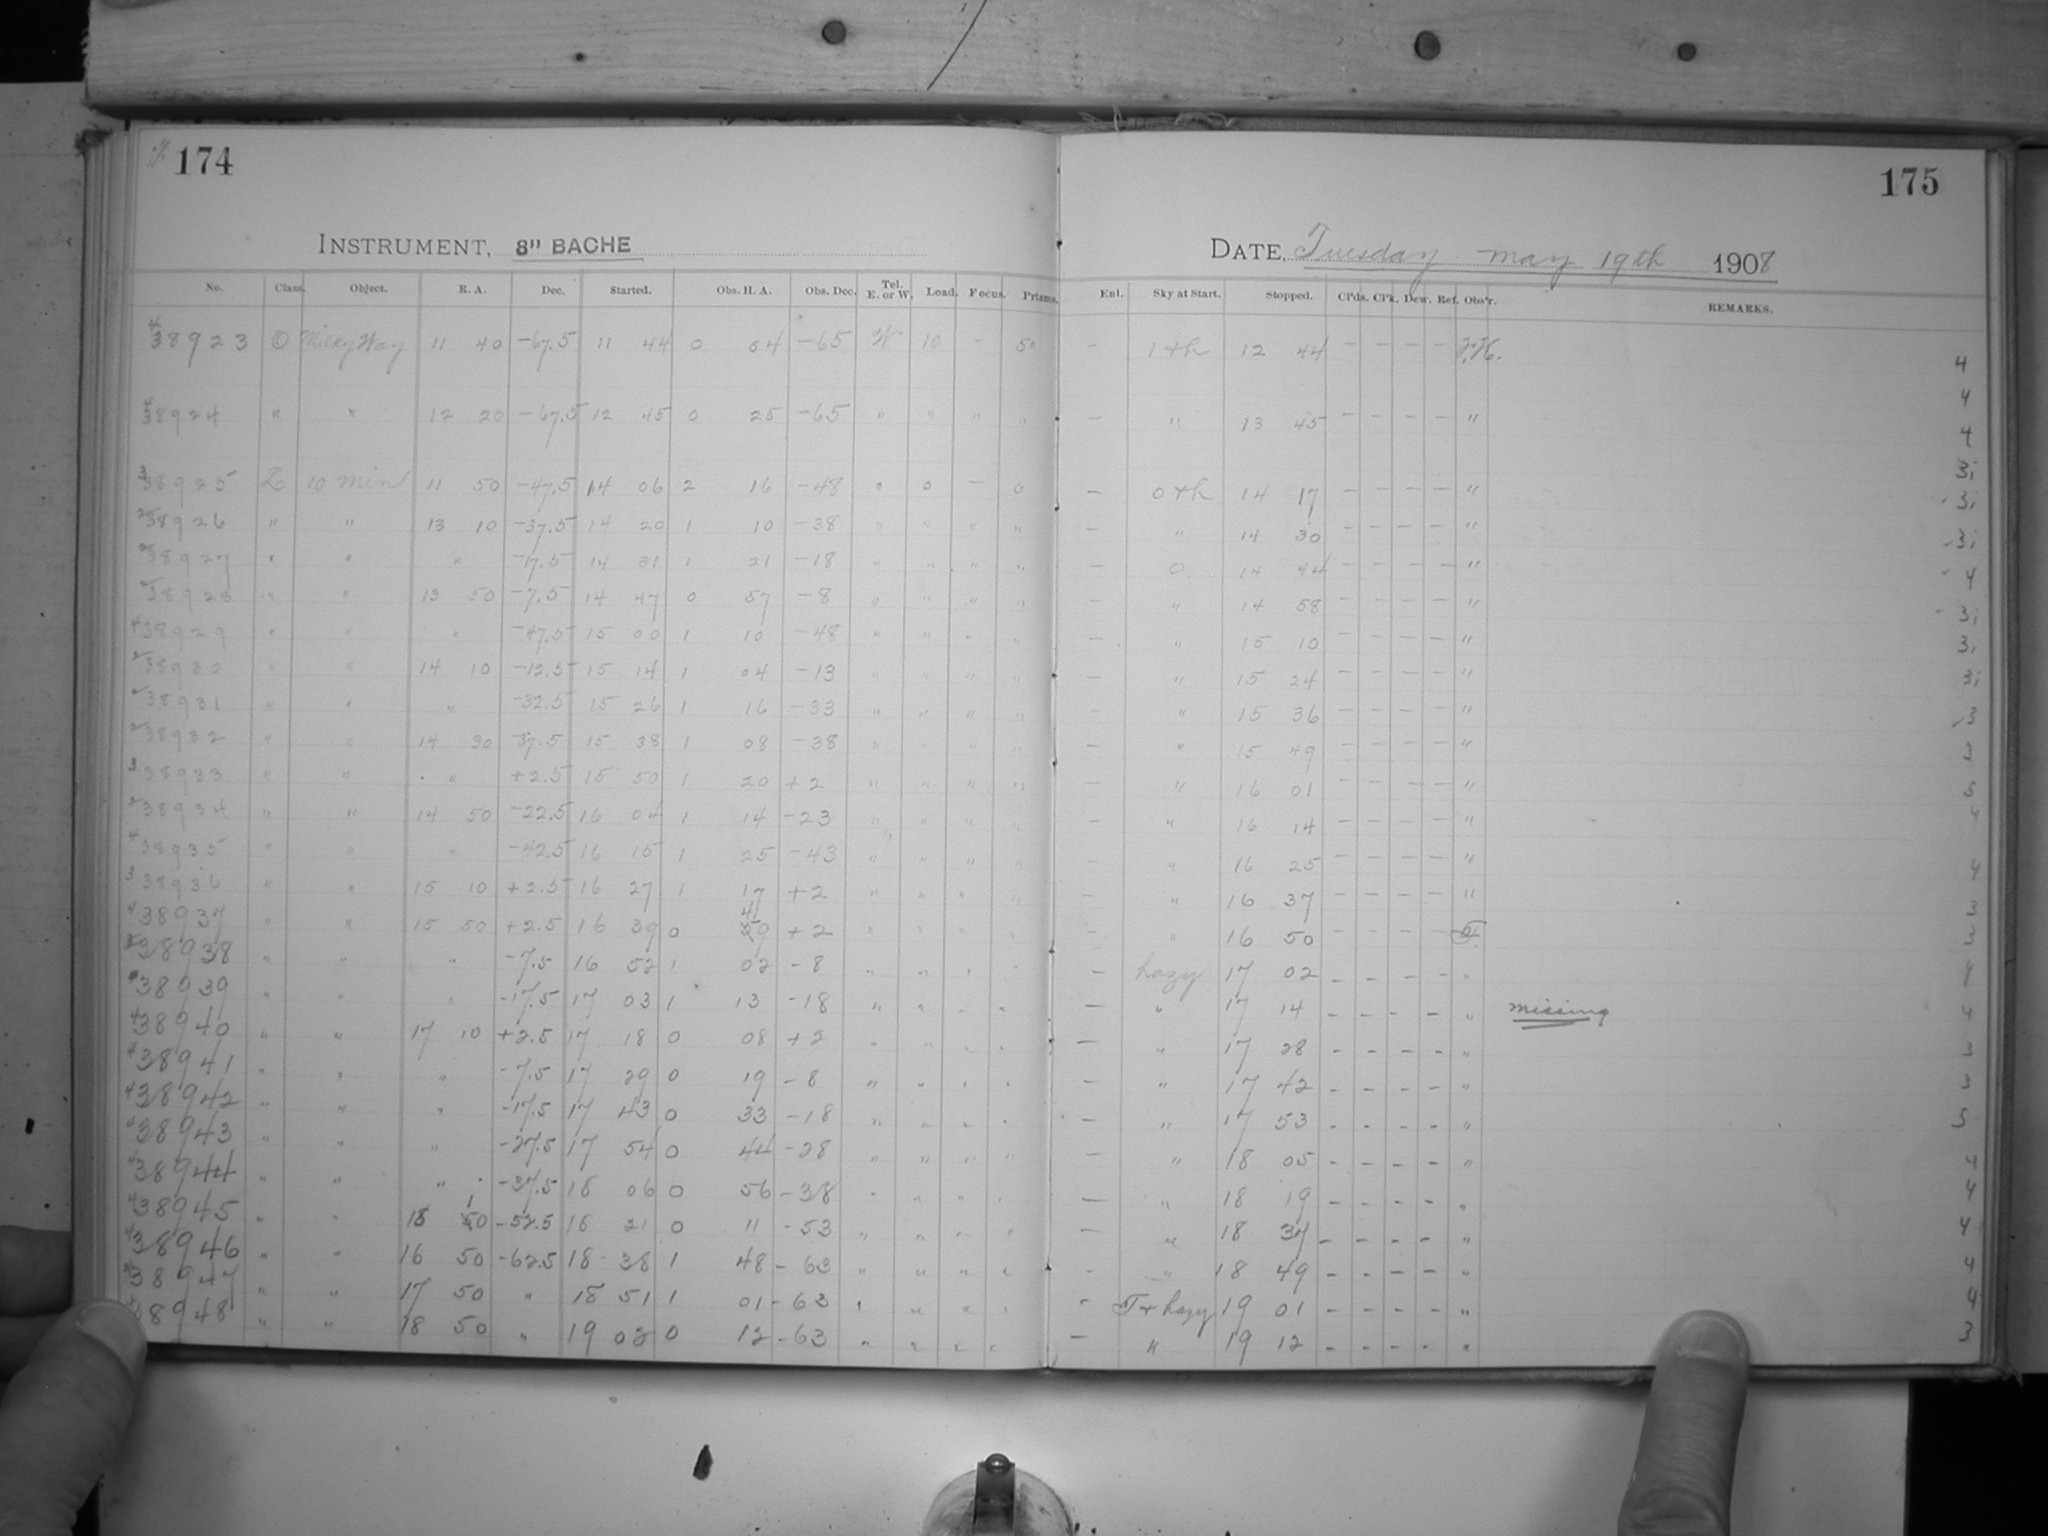 174
175
INSTRUMENT, 8" BACHE
DATE, Tuesday May 19th 1908
No. Class. Object. R. A. Dec. Started. Obs. H. A. Obs. Dec. Tel. E. or W. Load. Focus. Prisms. Enl. Sky at Start. Stopped. Cl'ds. Cl'k. Dew. Ref. Obs'r. REMARKS.
38923 O Milky Way 11 40 -67.5 11 44 0 04 -65 W 10 - 50 - 1+h 12 44 - - - - 4
38924 " " 12 20 -67.5 12 45 0 25 -65 " " " " - " 13 45 - - - - " 4
38925 L 10 min 11 50 -47.5 14 06 2 16 -48 " 0 - 0 - 0+h 14 17 - - - - "
38926 " " 13 10 -37.5 14 20 1 10 -38 " " " " - " 14 30 - - - - "
38927 " " " -17.5 14 31 1 21 -18 " " " " - 0 14 44 - - - - "
38928 " " 13 50 -7.5 14 47 0 57 -8 " " " " - " 14 58 - - - - "
38929 " " " -47.5 15 00 1 10 -48 " " " " - " 15 10 - - - - "
38930 " " 14 10 -12.5 15 14 1 04 -13 " " " " - " 15 24 - - - - "
38931 " " " -32.5 15 26 1 16 -33 " " " " - " 15 36 - - - - "
38932 " " 14 30 -37.5 15 38 1 08 -38 " " " " - " 15 49 - - - - "
38933 " " " +2.5 15 50 1 20 +2 " " " " - " 16 01 - - - - "
38934 " " 14 50 -22.5 16 04 1 14 -23 " " " " - " 16 14 - - - - "
38935 " " " -42.5 16 15 1 25 -43 " " " " - " 16 25 - - - - "
38936 " " 15 10 +2.5 16 27 1 17 +2 " " " " - " 16 37 - - - - "
38937 " " 15 50 +2.5 16 39 0 49 +2 " " " " - " 16 50 - - - - F.
38938 " " " -7.5 16 52 1 02 -8 " " " " - hazy 17 02 - - - - "
38939 " " " -17.5 17 03 1 13 -18 " " " " - " 17 14 - - - - " missing
38940 " " 17 10 +2.5 17 18 0 08 +2 " " " " - " 17 28 - - - - "
38941 " " " -7.5 17 29 0 19 -8 " " " " - " 17 42 - - - - "
38942 " " " -17.5 17 43 0 33 -18 " " " " - " 17 53 - - - - "
38943 " " " -27.5 17 54 0 44 -28 " " " " - " 18 05 - - - - "
38944 " " " -37.5 18 06 0 56 -38 " " " " - " 18 19 - - - - "
38945 " " 18 10 -52.5 18 21 0 11 -53 " " " " - " 18 34 - - - - "
38946 " " 16 50 -62.5 18 38 1 48 -63 " " " " - " 18 49 - - - - "
38947 " " 17 50 " 18 51 1 01 -63 " " " " - T + hazy 19 01 - - - - "
38948 " " 18 50 " 19 02 0 12 -63 " " " " - " 19 12 - - - - " 3